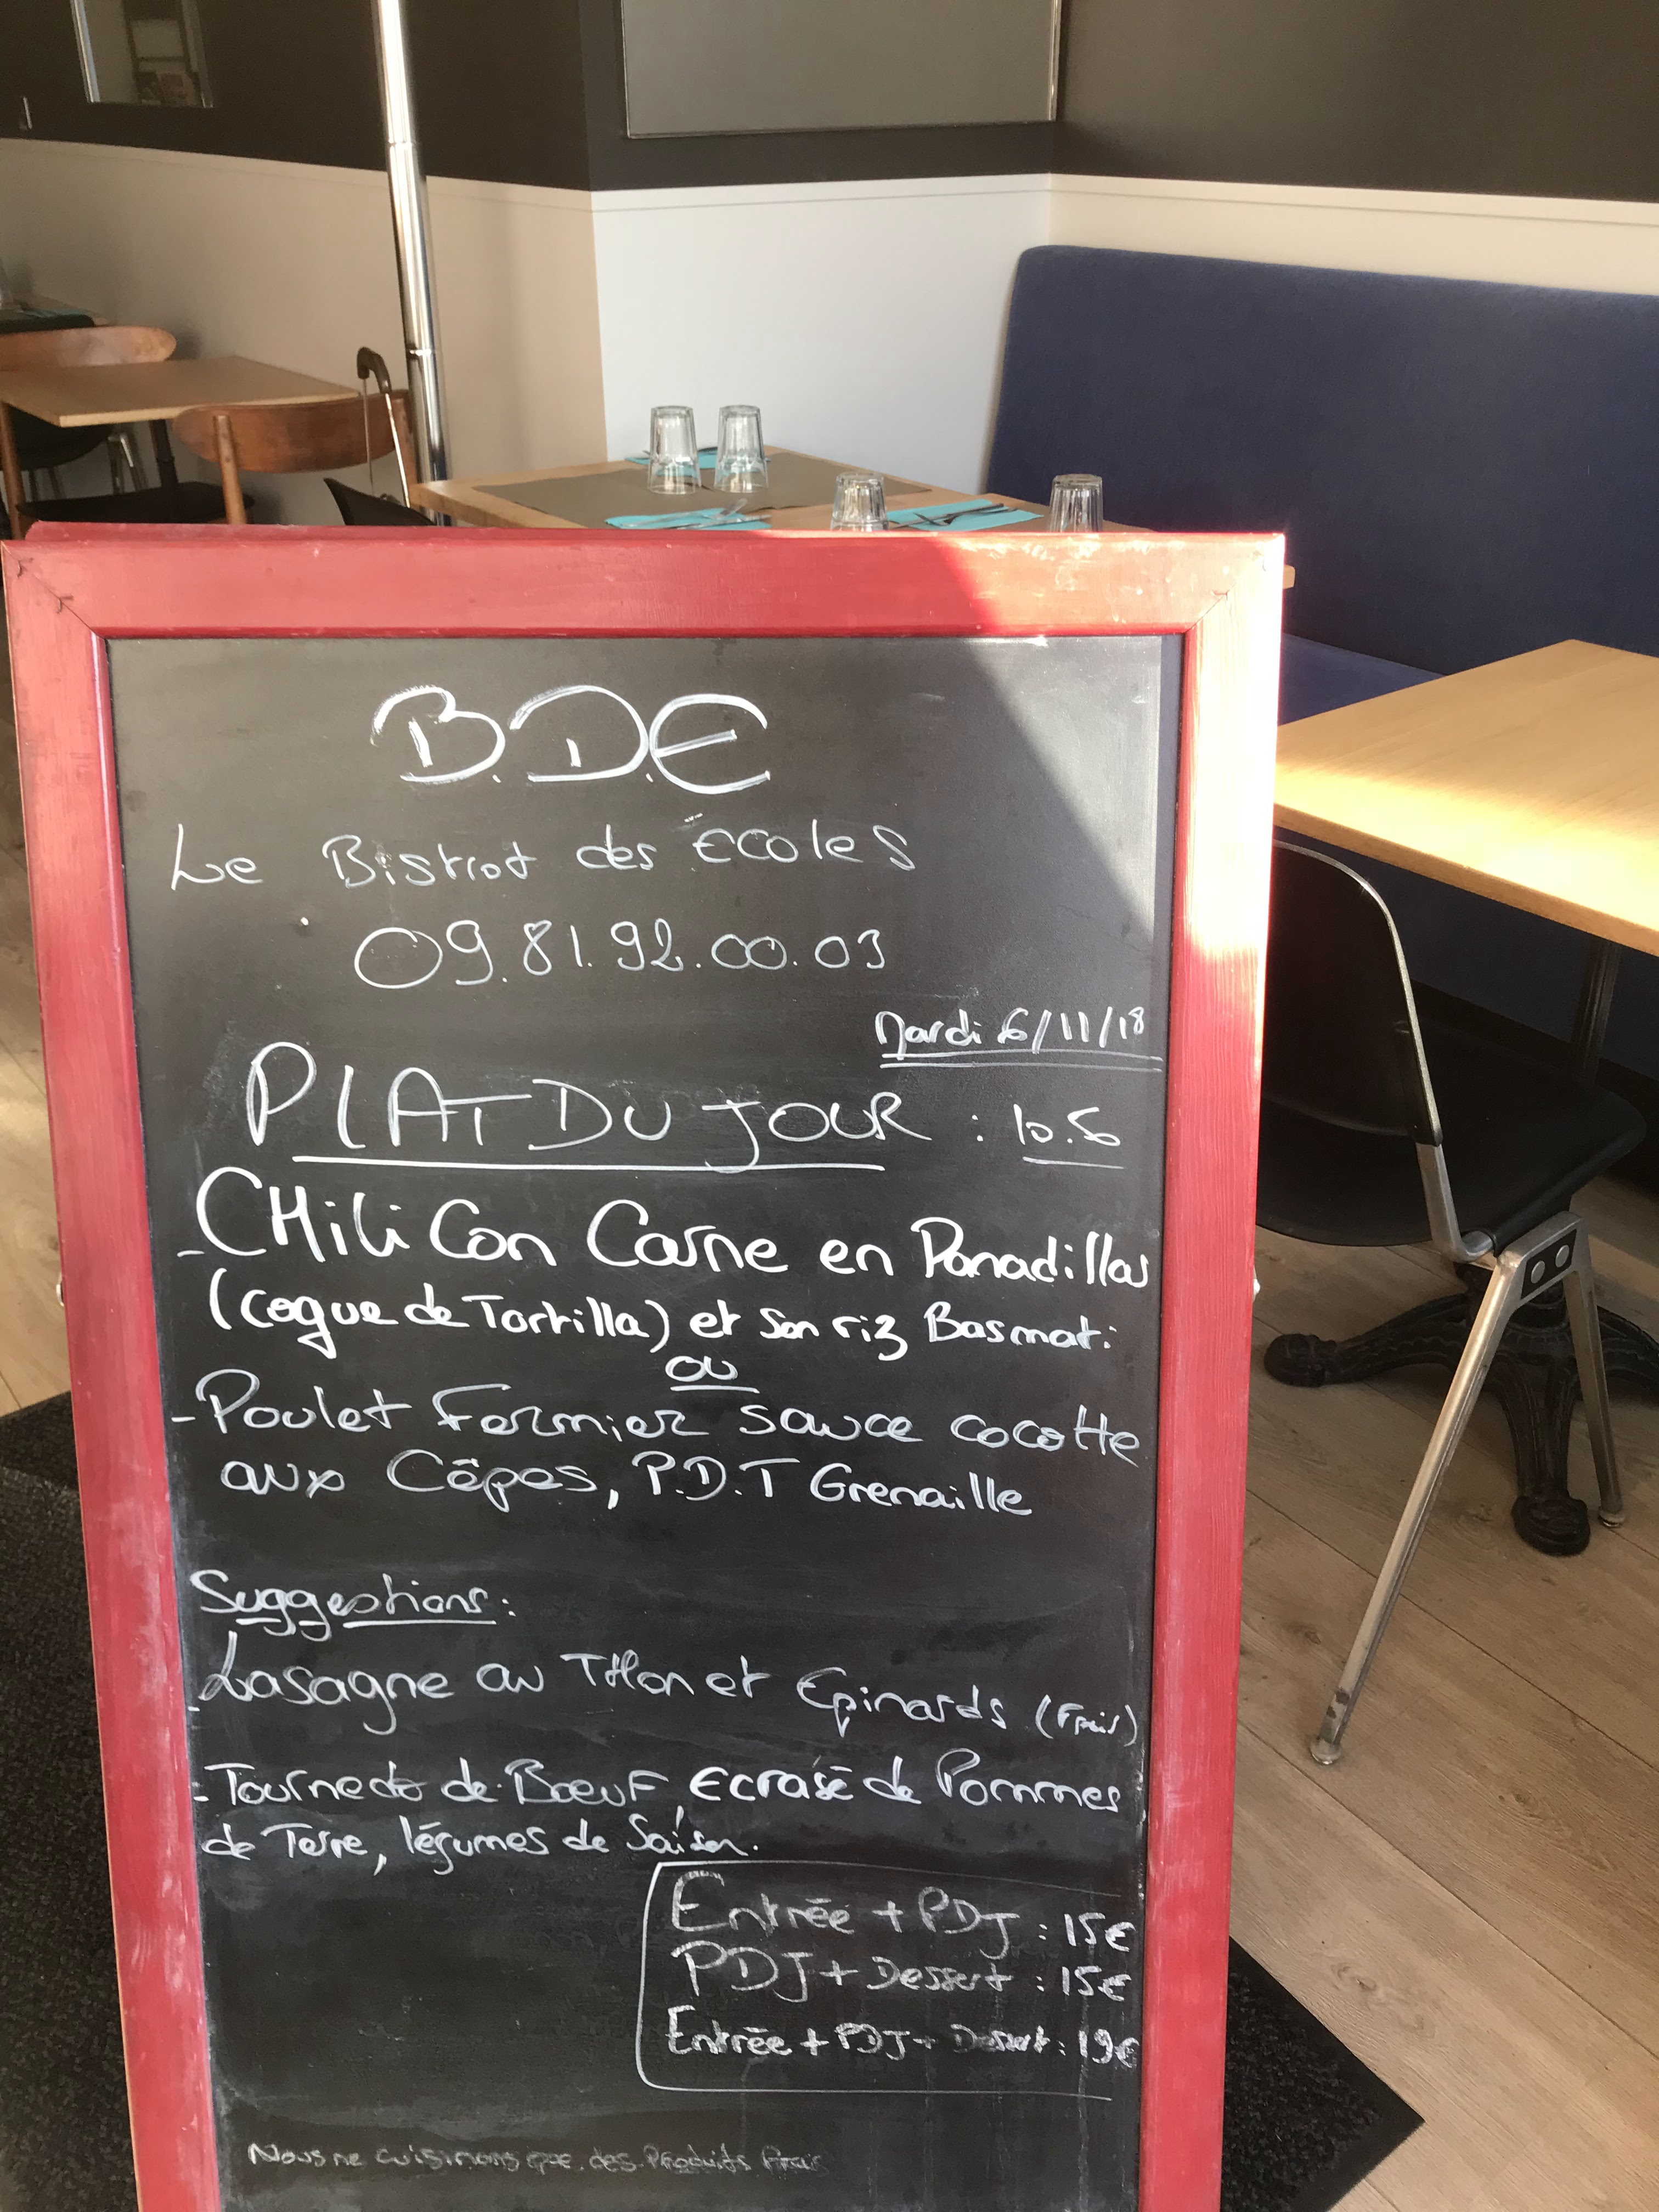 B.D.E
Le Bistrot des écoles
09.81.92.00.03
Mardi 6/11/18
PLAT DU JOUR : 10.50
- CHili Con Carne en Panadillas
(coque de Tortilla) et son riz Basmati
ou
- Poulet Fermier sauce cocotte
aux Cêpes, P.D.T Grenaille
Suggestions :
- Lasagne au THon et Epinards (Frais)
- Tournedo de Bœuf, Ecrasé de Pommes
de Terre, légumes de Saison.
Entrée + PDJ : 15€
PDJ + Dessert : 15€
Entrée + PDJ + Dessert : 19€
Nous ne cuisinons que des Produits frais